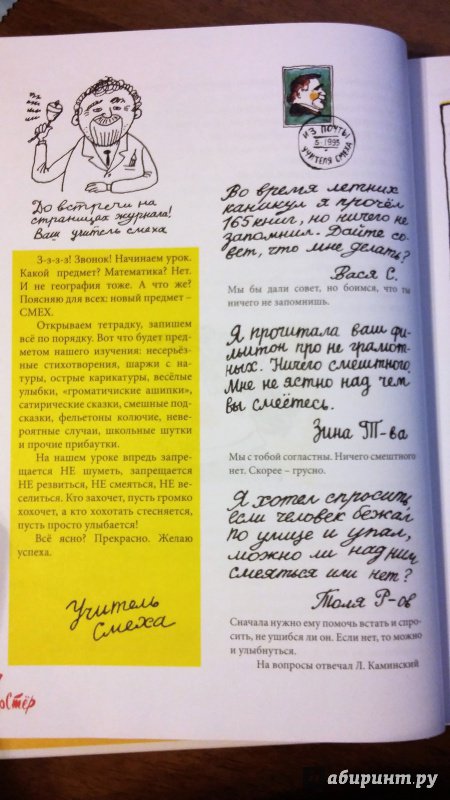 До встречи на
страницах журнала!
Ваш учитель смеха
З-з-з-з! Звонок! Начинаем урок.
Какой предмет? Математика? Нет.
И не география тоже. А что же?
Поясняю для всех: новый предмет –
СМЕХ.
Открываем тетрадку, запишем
всё по порядку. Вот что будет пред-
метом нашего изучения: несерьёз-
ные стихотворения, шаржи с на-
туры, острые карикатуры, весёлые
улыбки, «громатичиские ашипки»,
сатирические сказки, смешные под-
сказки, фельетоны колючие, неве-
роятные случаи, школьные шутки
и прочие прибаутки.
На нашем уроке впредь запре-
щается НЕ шуметь, запрещается
НЕ резвиться, НЕ смеяться, НЕ ве-
селиться. Кто захочет, пусть громко
хохочет, а кто хохотать стесняется,
пусть просто улыбается!
Всё ясно? Прекрасно. Желаю
успеха.
Учитель
Смеха
остёр
ИЗ ПОЧТЫ
5 1995
УЧИТЕЛЯ СМЕХА
Во время летних
каникул я прочёл
165 книг, но ничего не
запомнил. Дайте со-
вет, что мне делать?
Вася С.
Мы бы дали совет, но боимся, что ты
ничего не запомнишь.
Я прочитала ваш фи-
льитон про не грамот-
ных. Ничего смештного.
Мне не ястно над чем
вы смеётесь.
Зина Т-ва
Мы с тобой согластны. Ничего смештного
нет. Скорее – грусно.
Я хотел спросить,
если человек бежал
по улице и упал,
можно ли над ним
смеяться или нет?
Толя Р-ов
Сначала нужно ему помочь встать и спро-
сить, не ушибся ли он. Если нет, то можно
и улыбнуться.
На вопросы отвечал Л. Каминский
абиринт.ру